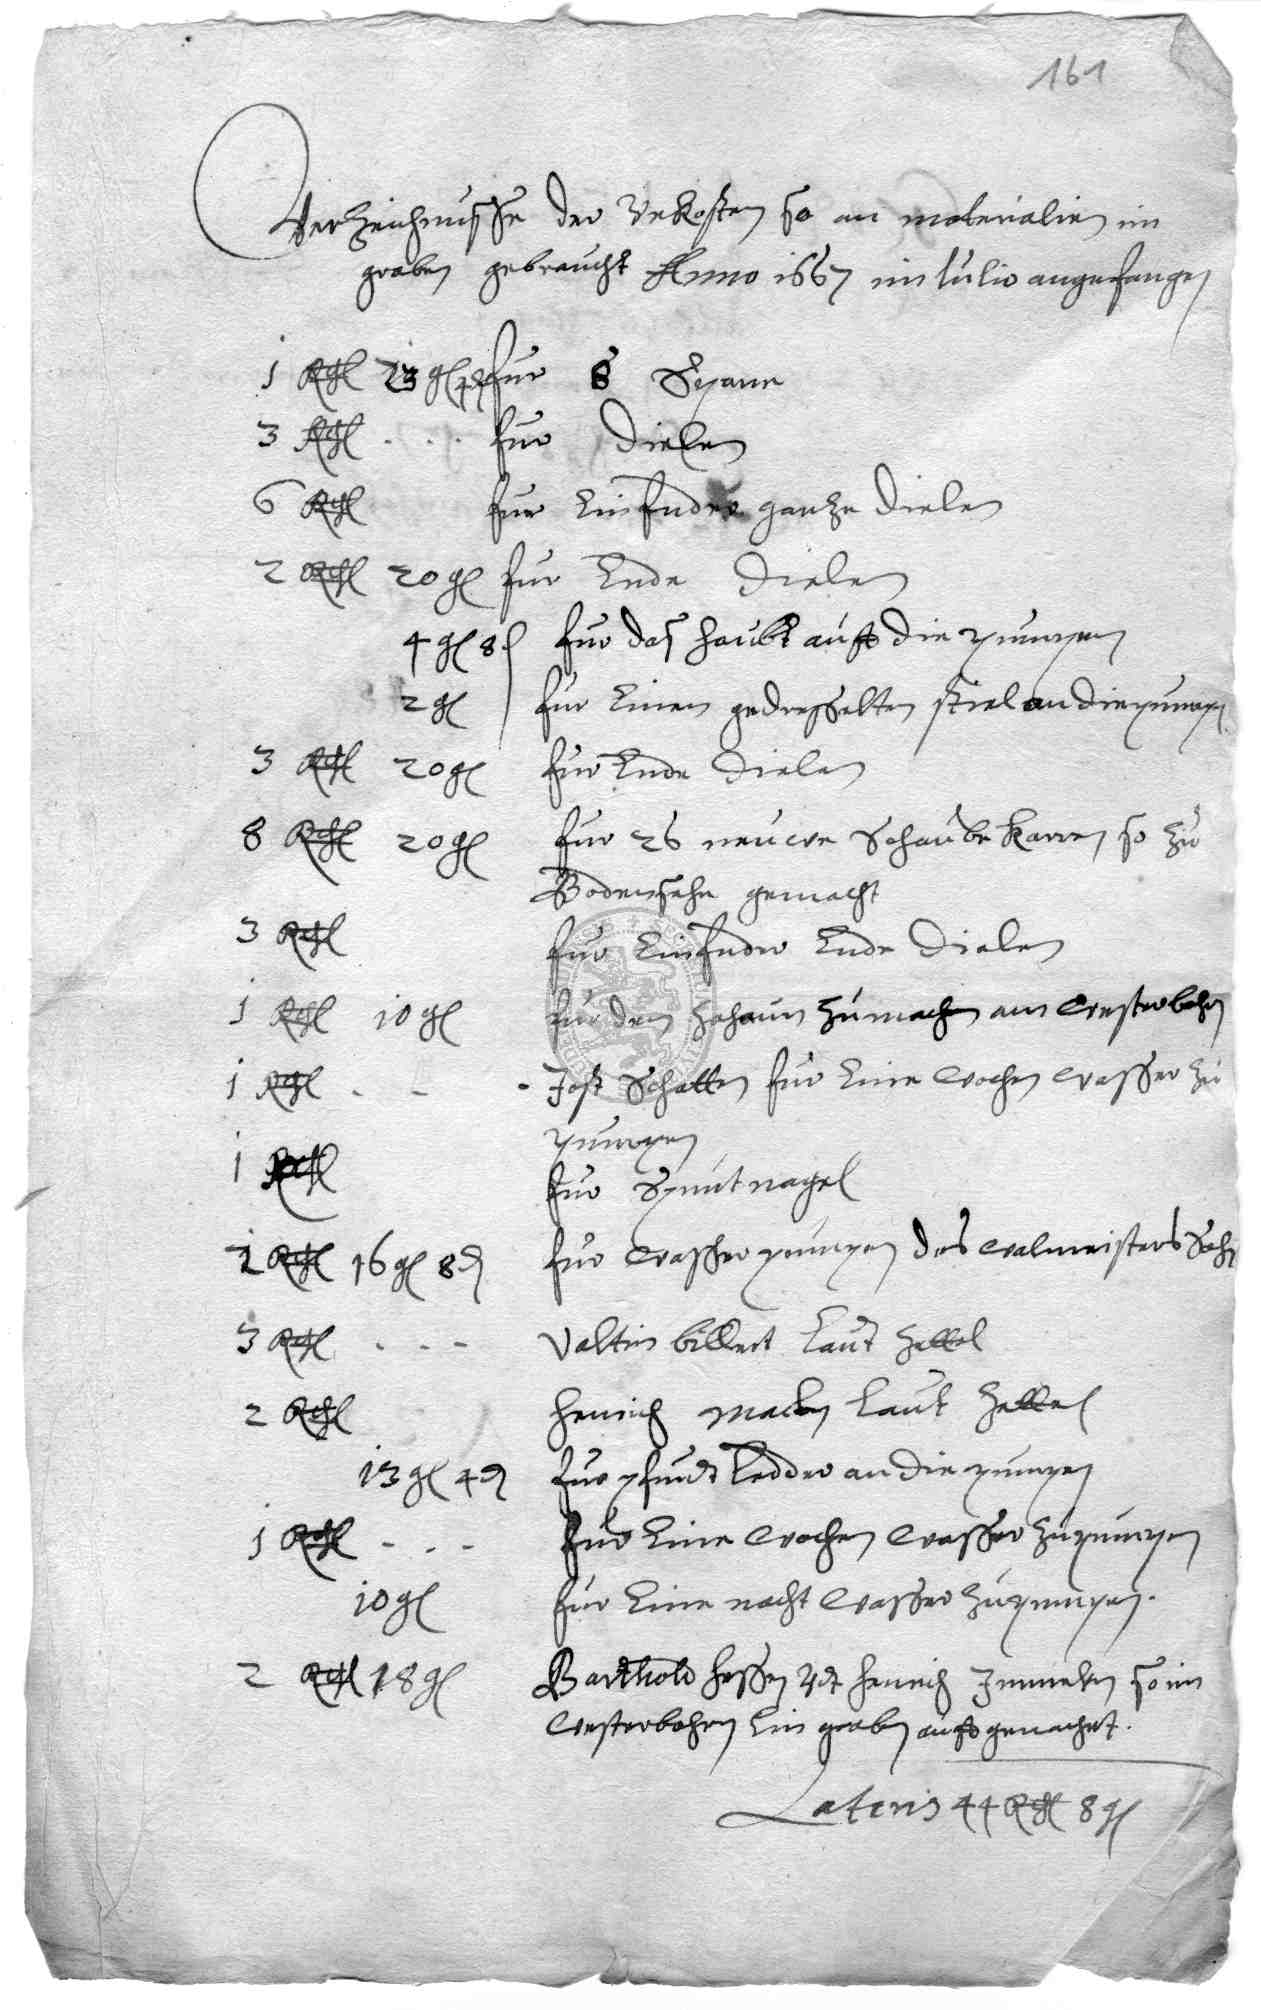 161
Verzeichnusse der Vnkosten so an materialien im
graben gebraucht Anno 1667 im Iulio angefangen
1 Rthl 13 gl 4 d fur 8 Spann
3 Rthl . . . fur Dielen
6 Rthl fur Ein fuder gantze Dielen
2 Rthl 20 gl fur Ende Dielen
4 gl 8 d fur das haubt auff die pumpen
2 gl fur Einen gedresselten stiel an die pumpen
3 Rthl 20 gl fur Ende Dielen
8 Rthl 20 gl fur 26 neuwe Schaube karren so zu
Bodensehe gemacht
3 Rthl fur Ein fuder Ende Dielen
1 Rthl 10 gl fur den zu machen am Westerbohrn
1 Rthl - - Jost Schatten fur Eine wochen wasser zu
pumpen
1 Rthl fur Spint nagel
1 Rthl 16 gl 8 d fur wasser pumpen des walmeisters Sohn
3 Rthl - - - Valtin billert Laut Zettel
2 Rthl Henrich Macken Laut Zettel
13 gl 4 d fur pfundt Ledder an die pumpen
1 Rthl - - - fur Eine wochen wasser zu pumpen
10 gl fur Eine nacht wasser zu pumpen.
2 Rthl 18 gl Barthold Hessen Vdt Henrich so im
Westerbohrn Ein graben auffgemachet.
Lateris 44 Rthl 8 gl